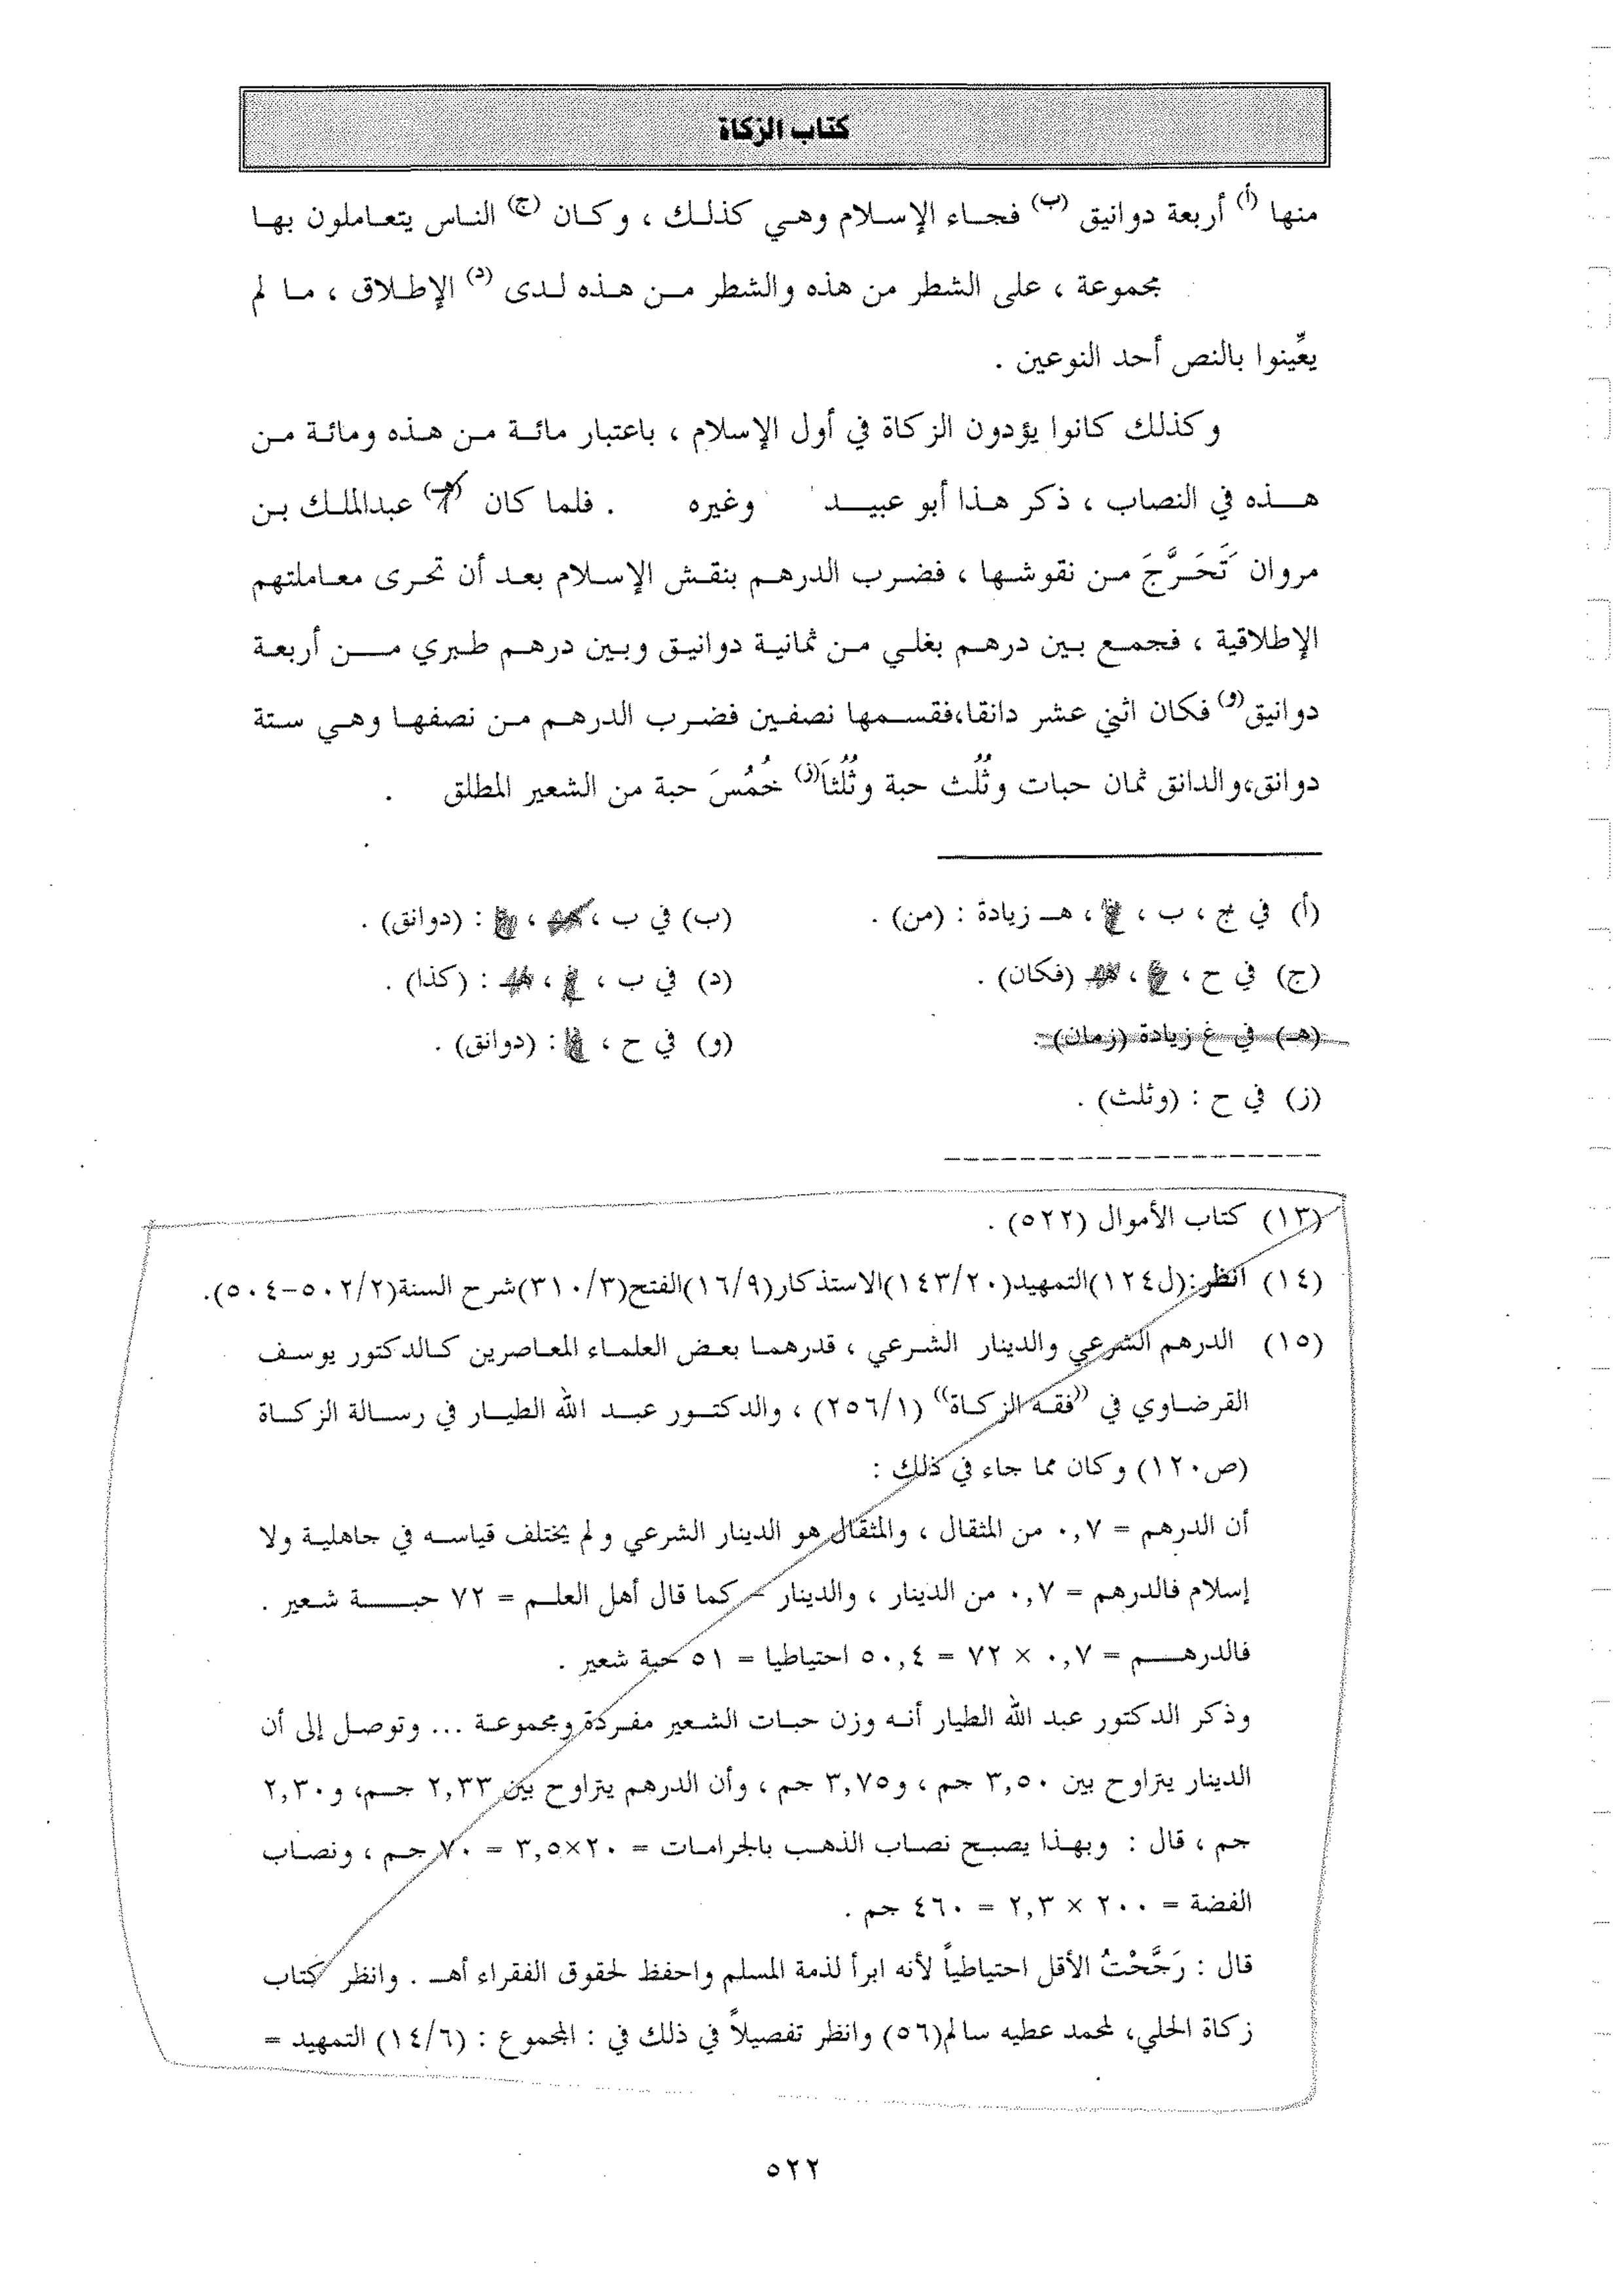 كتاب الزكاة
منها (أ) أربعة دوانيق (ب) فجاء الإسلام وهي كذلك ، وكان (ج) الناس يتعاملون بها
مجموعة ، على الشطر من هذه والشطر من هذه لدى (د) الإطلاق ، ما لم
يعّينوا بالنص أحد النوعين .
وكذلك كانوا يؤدون الزكاة في أول الإسلام ، باعتبار مائة من هذه ومائة من
هذه في النصاب ، ذكر هذا أبو عبيد وغيره . فلما كان (هـ) عبدالملك بن
مروان تَحَرَّجَ من نقوشها ، فضرب الدرهم بنقش الإسلام بعد أن تحرى معاملتهم
الإطلاقية ، فجمع بين درهم بغلي من ثمانية دوانيق وبين درهم طبري من أربعة
دوانيق(و) فكان اثني عشر دانقا،فقسمها نصفين فضرب الدرهم من نصفها وهي ستة
دوانق،والدانق ثمان حبات وثُلُث حبة وثُلُثاَ(ز) خُمُسَ حبة من الشعير المطلق .
(أ) في ج ، ب ، ، هـ زيادة : (من) .
(ب) في ب ، ، : (دوانق) .
(ج) في ح ، ، (فكان) .
(د) في ب ، ، : (كذا) .
(هـ) في غ زيادة (زمان) .
(و) في ح ، : (دوانق) .
(ز) في ح : (وثلث) .
(١٣) كتاب الأموال (٥٢٢) .
(١٤) انظر:(ل١٢٤)التمهيد(١٤٣/٢٠)الاستذكار(١٦/٩)الفتح(٣١٠/٣)شرح السنة(٥٠٢/٢-٥٠٤).
(١٥) الدرهم الشرعي والدينار الشرعي ، قدرهما بعض العلماء المعاصرين كالدكتور يوسف
القرضاوي في ((فقه الزكاة)) (٢٥٦/١) ، والدكتور عبد الله الطيار في رسالة الزكاة
(ص١٢٠) وكان مما جاء في ذلك :
أن الدرهم = ٠,٧ من المثقال ، والمثقال هو الدينار الشرعي ولم يختلف قياسه في جاهلية ولا
إسلام فالدرهم = ٠,٧ من الدينار ، والدينار - كما قال أهل العلم = ٧٢ حبة شعير .
فالدرهم = ٠,٧ × ٧٢ = ٥٠,٤ احتياطيا = ٥١ حبة شعير .
وذكر الدكتور عبد الله الطيار أنه وزن حبات الشعير مفردة ومجموعة ... وتوصل إلى أن
الدينار يتراوح بين ٣,٥٠ جم ، و٣,٧٥ جم ، وأن الدرهم يتراوح بين ٢,٣٣ جم، و٢,٣٠
جم ، قال : وبهذا يصبح نصاب الذهب بالجرامات = ٢٠×٣,٥ = ٧٠ جم ، ونصاب
الفضة = ٢٠٠ × ٢,٣ = ٤٦٠ جم .
قال : رَجَّحْتُ الأقل احتياطياً لأنه ابرأ لذمة المسلم واحفظ لحقوق الفقراء أهـ . وانظر كتاب
زكاة الحلي، لمحمد عطيه سالم(٥٦) وانظر تفصيلاً في ذلك في : المجموع : (١٤/٦) التمهيد =
٥٢٢